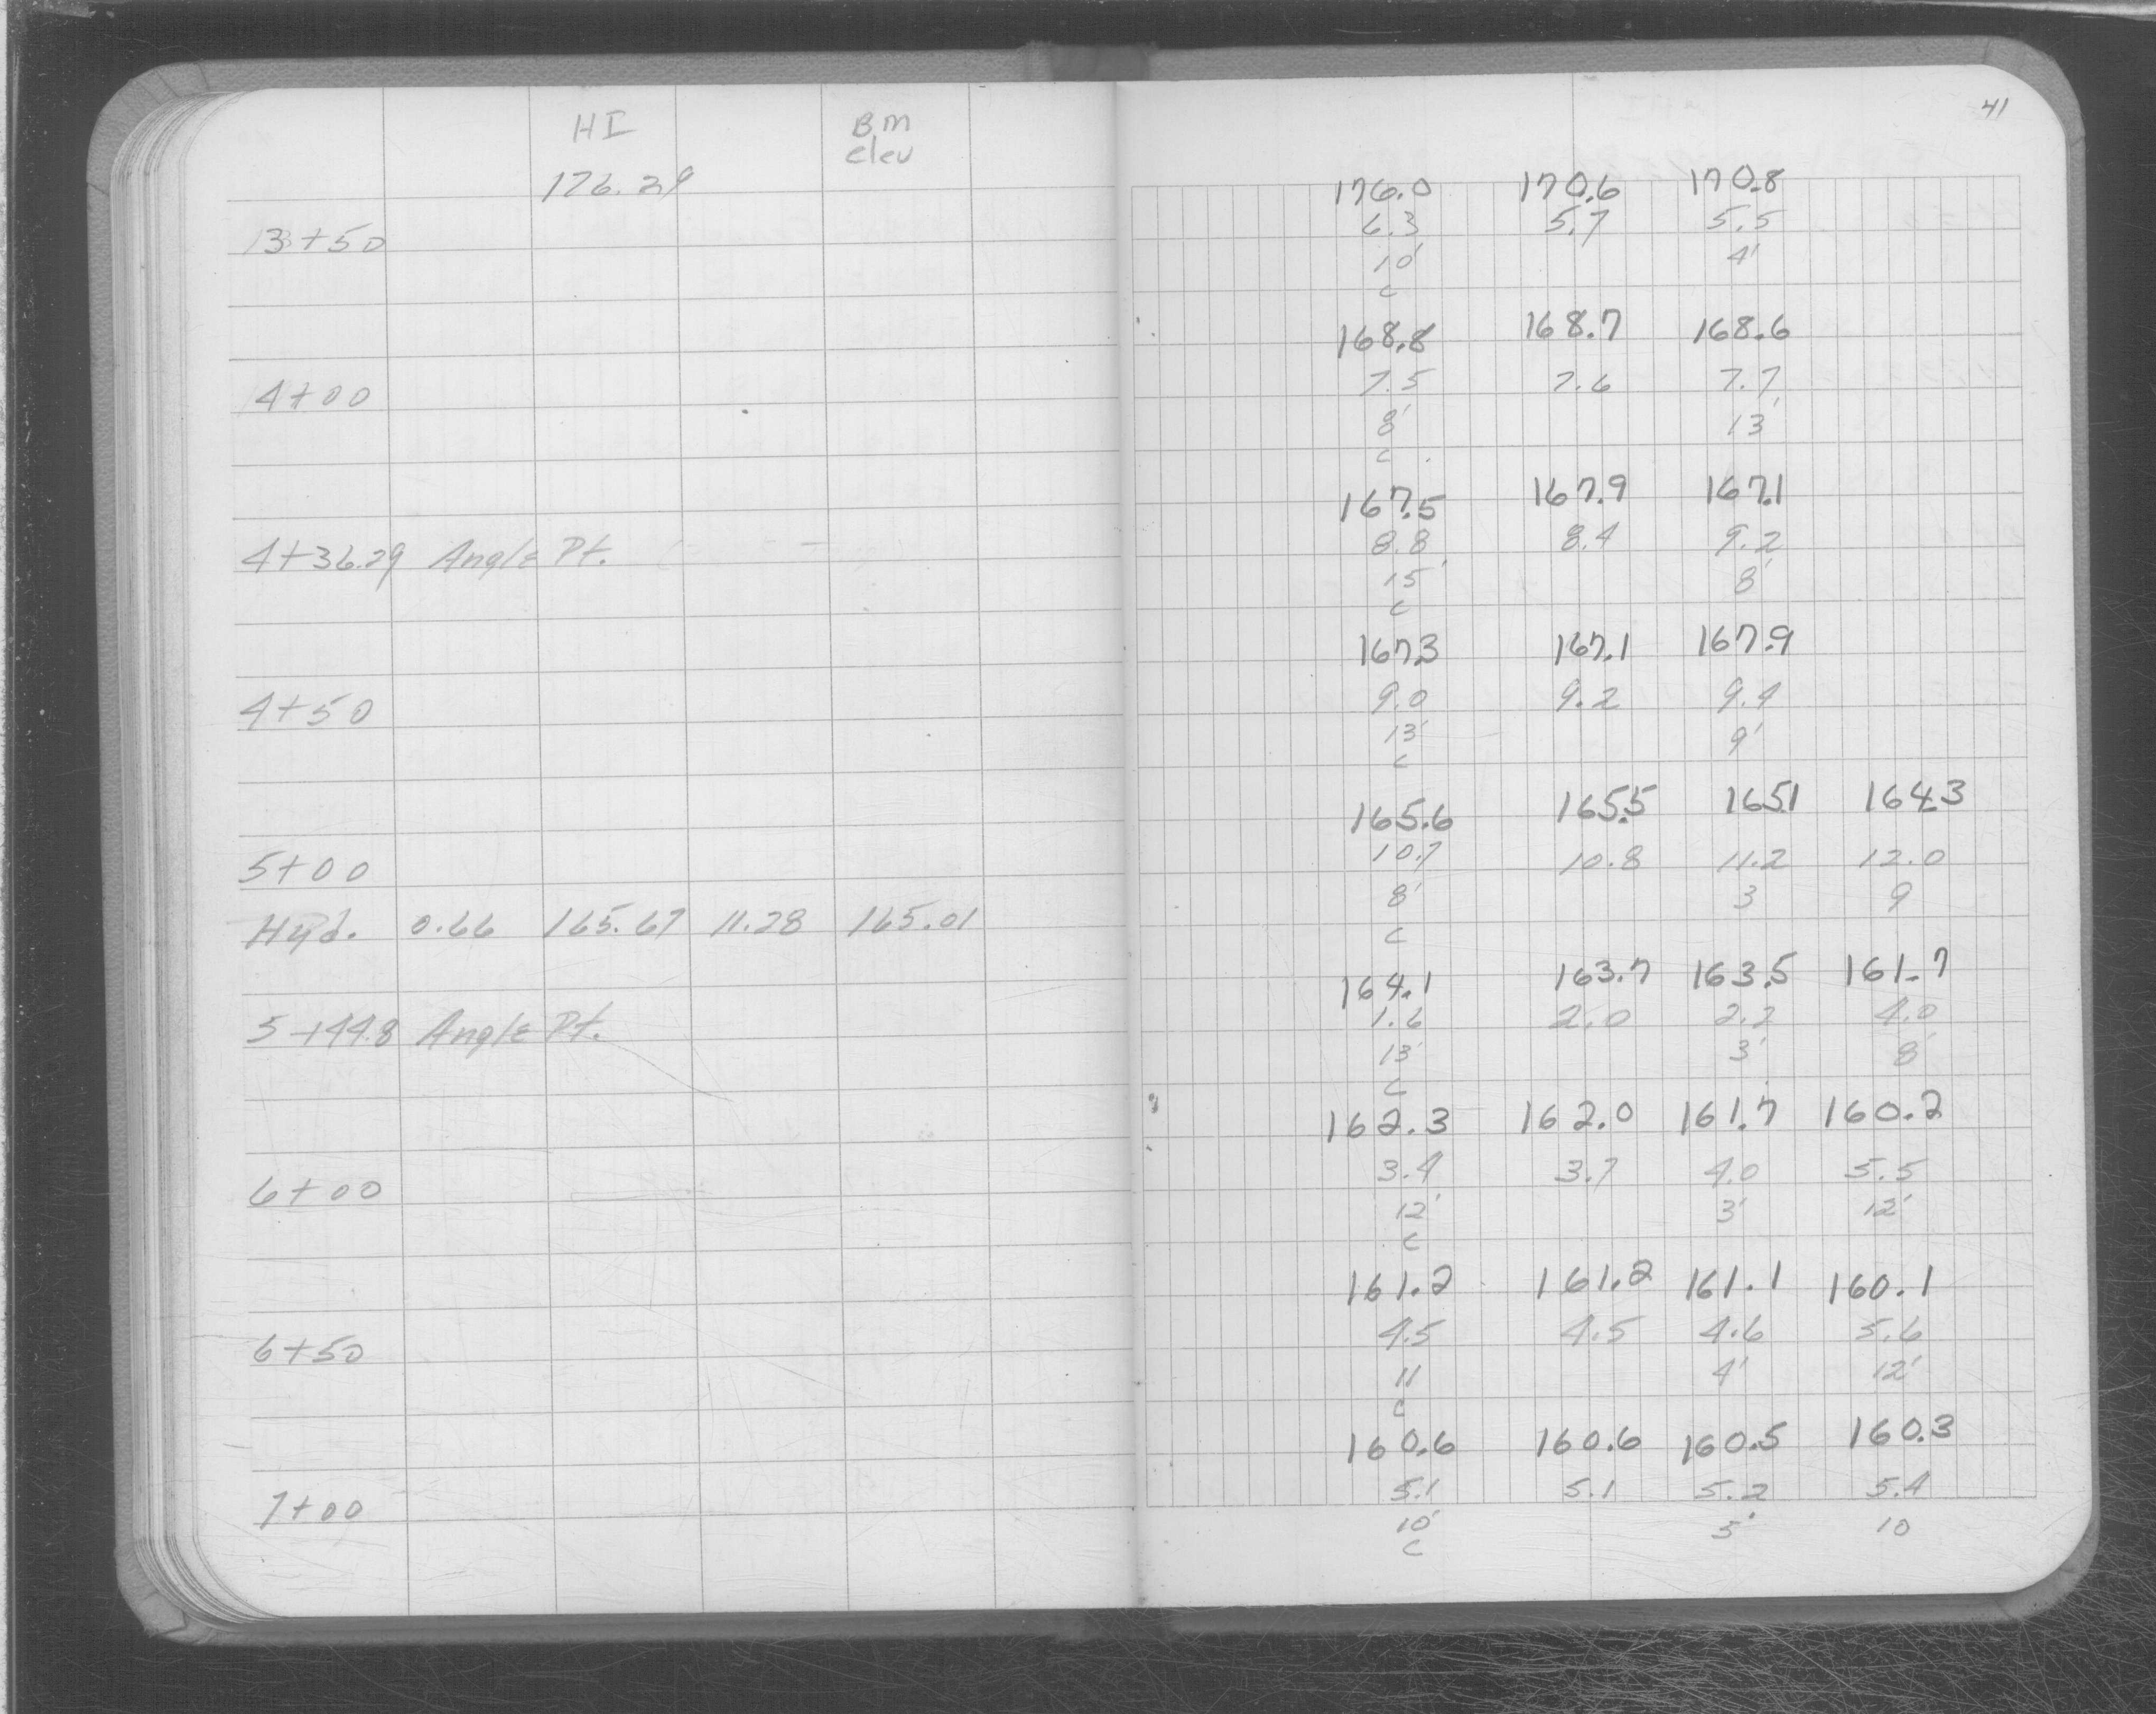 41
HI Bm
elev
176.29
3+50
4+00
4+36.29 Angle Pt.
4+50
5+00
Hyd. 0.66 165.67 11.28 165.01
5+44.8 Angle Pt.
6+00
6+50
7+00
176.0 170.6 170.8
6.3 5.7 5.5
10' 4'
c
168.8 168.7 168.6
7.5 7.6 7.7
8' 13'
c
167.5 167.9 167.1
8.8 8.4 9.2
15' 8'
c
167.3 167.1 167.9
9.0 9.2 9.4
13' 9'
c
165.6 165.5 165.1 164.3
10.7 10.8 11.2 12.0
8' 3 9
c
164.1 163.7 163.5 161.7
1.6 2.0 2.2 4.0
13' 3' 8'
c
162.3 162.0 161.7 160.2
3.4 3.7 4.0 5.5
12' 3' 12'
c
161.2 161.2 161.1 160.1
4.5 4.5 4.6 5.6
11 4' 12'
c
160.6 160.6 160.5 160.3
5.1 5.1 5.2 5.4
10' 10
c